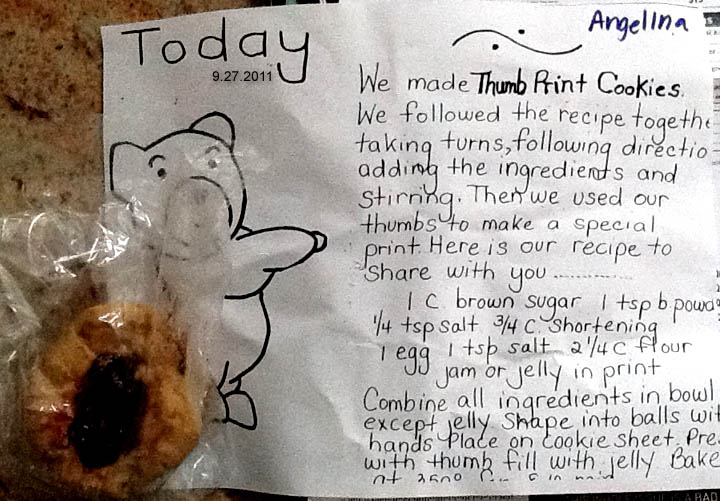 Today
9.27.2011
Angelina
We made Thumb Print Cookies.
We followed the recipe togethe
taking turns, following directio
adding the ingredients and
stirring. Then we used our
thumbs to make a special
print. Here is our recipe to
share with you ..............
1 C. brown sugar 1 tsp b.powd
1/4 tsp salt 3/4 C. Shortening
1 egg 1 tsp salt 2 1/4 C flour
jam or jelly in print
Combine all ingredients in bowl
except jelly Shape into balls wit
hands Place on cookie sheet. Pre
with thumb fill with jelly Bake